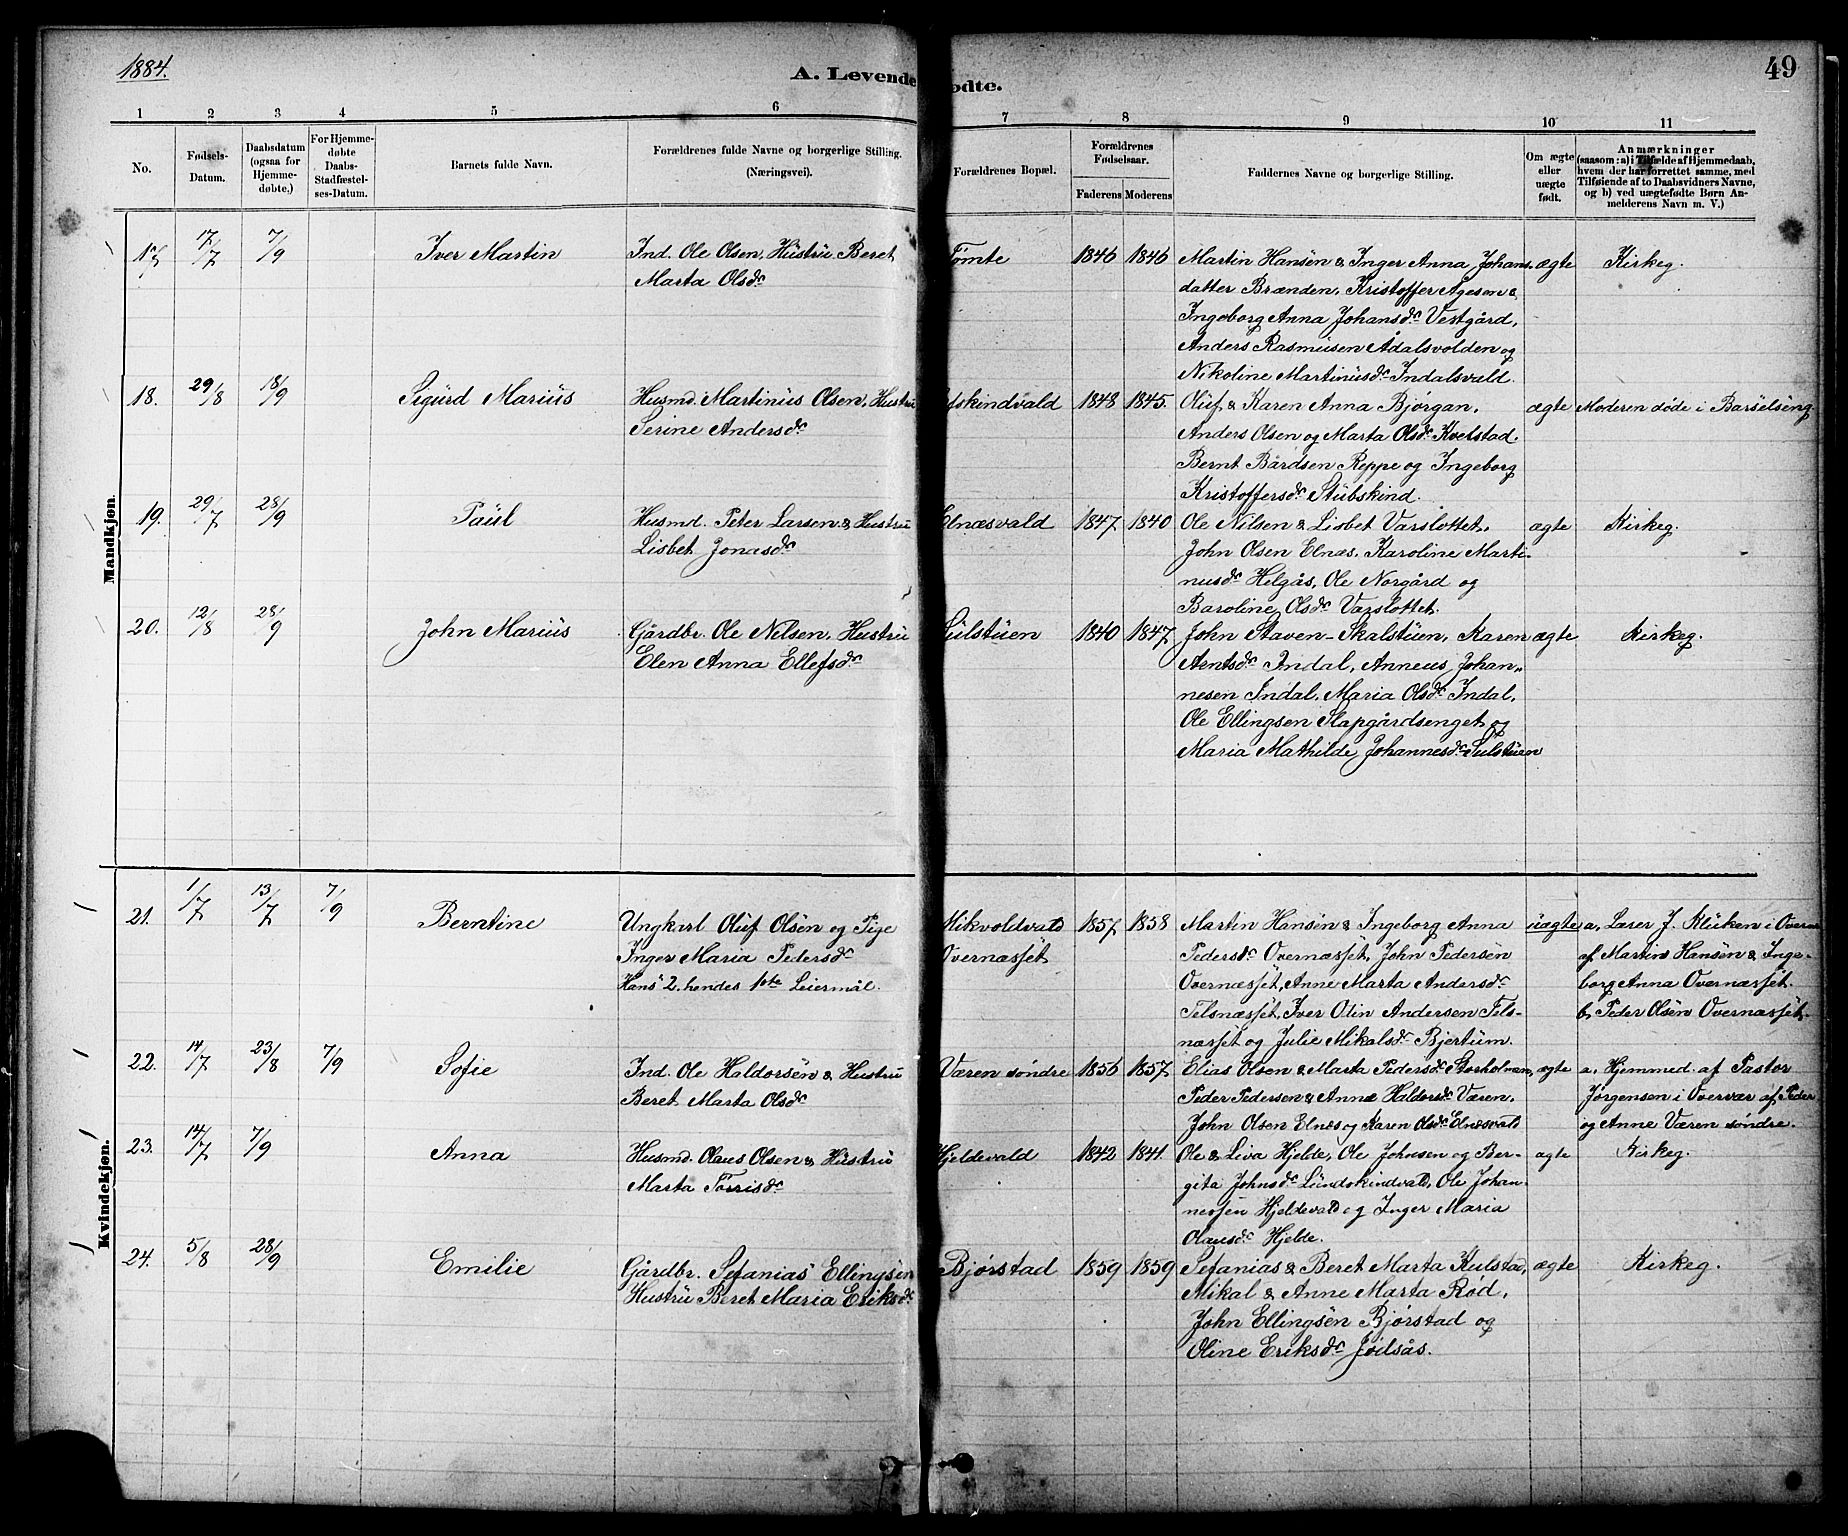 1884.
A. Levende
ødte.
49
1 2 3 4 5 6 7 8 9 10 11
No.
Fødsels-
Datum.
Daabsdatum
(ogsaa for
Hjemme-
døbte,)
For Hjemme-
døbte
Daabs-
Stadfæstel-
ses-Datum.
Barnets fulde Navn.
Forældrenes fulde Navne og borgerlige Stilling.
(Næringsvei).
Forældrenes Bopæl.
Forældrenes
Fødselsaar.
Faderens Moderens
Faddernes Navne og borgerlige Stilling.
Om ægte
eller
uægte
født.
Anmærkninger
(saasom: a) i Tilfælde af Hjemmedaab,
hvem der har forrettet samme, med
Tilføiende af to Daabsvidners Navne,
og b) ved uægtefødte Børn An-
melderens Navn m. V.)
Mandkjøn.
17. 17/7 7/9 Iver Martin Ind. Ole Olsen, Hustru Beret Tømte 1846 1846 Martin Hansen & Inger Anna Johans- ægte Kirkeg.
Marta Olsdr datter Brænden, Kristoffer Agesen &
Ingeborg Anna Johansdr Vestgård,
Anders Rasmusen Ådalsvolden og
Nikoline Martinusdr Indalsvald.
18. 29/8 18/9 Sigurd Marius Husmd. Martinus Olsen, Hustru skindvald 1848 1845. Oluf & Karen Anna Bjørgan, ægte Moderen døde i Barselseng.
Serine Andersdr Anders Olsen og Marta Olsdr Kvelstad.
Bernt Bårdsen Reppe og Ingeborg
Kristoffersdr Stubskind.
19. 29/7 28/9 Paul Husmd. Peter Larsen & Hustru Elnæsvald 1847 1840 Ole Nilsen & Lisbet Varslottet, ægte Kirkeg.
Lisbet Jonasdr John Olsen Elnæs, Karoline Marti-
nusdr Helgås, Ole Norgård og
Baroline Olsdr Varslottet.
20. 12/8 28/9 John Marius Gårdbr. Ole Nilsen, Hustru Sulstuen 1840 1847. John Staven-Skalstuen, Karen ægte Kirkeg.
Elen Anna Ellefsdr Arntsdr Indal, Anneus Johan-
nesen Indal, Maria Olsdr Indal,
Ole Ellingsen Slapgårdsenget og
Maria Mathilde Johannesdr Sulstuen
Kvindekjøn.
21. 1/7 13/7 7/9 Berntine Ungkarl Oluf Olsen og Pige Mikvoldvald 1857 1858 Martin Hansen & Ingeborg Anna uægte a, Lærer J. Kluken i Overv.
Inger Maria Pedersdr Overnæsset Pedersdr Overnæsset, John Pedersen af Martin Hansen & Inge-
Hans 2. hendes 1ste Leiermål. Overnæsset, Anne Marta Andersdr borg Anna Overnæsset.
Telsnæsset, Iver Olin Andersen Tels- b, Peder Olsen Overnæsset.
næsset og Julie Mikalsdr Bjertum.
22. 14/7 23/8 7/9 Sofie Ind. Ole Haldorsen & Hustru Væren søndre 1856 1857. Elias Olsen & Marta Pedersdr Storholmen, ægte a, Hjemmed. af Pastor
Beret Marta Olsdr Peder Pedersen & Anne Haldorsdr Væren, Jørgensen i Overvær af Peder
John Olsen Elnes og Karen Olsdr Elnesvald og Anne Væren søndre.
23. 14/7 7/9 Anna Husmd. Olaus Olsen & Hustru Hjeldevald 1842 1841. Ole & Liva Hjelde, Ole Johnsen og Ber- ægte Kirkeg.
Marta Torrisdr gita Johnsdr Lundskindvald, Ole Johan-
nessen Hjeldevald og Inger Maria
Olausdr Hjelde.
24. 5/8 28/9 Emilie Gårdbr. Sefanias Ellingsen Bjørstad 1859 1859 Sefanias & Beret Marta Kulstad, ægte Kirkeg.
Hustru Beret Maria Eriksdr Mikal & Anne Marta Rød,
John Ellingsen Bjørstad og
Oline Eriksdr Juilsås.